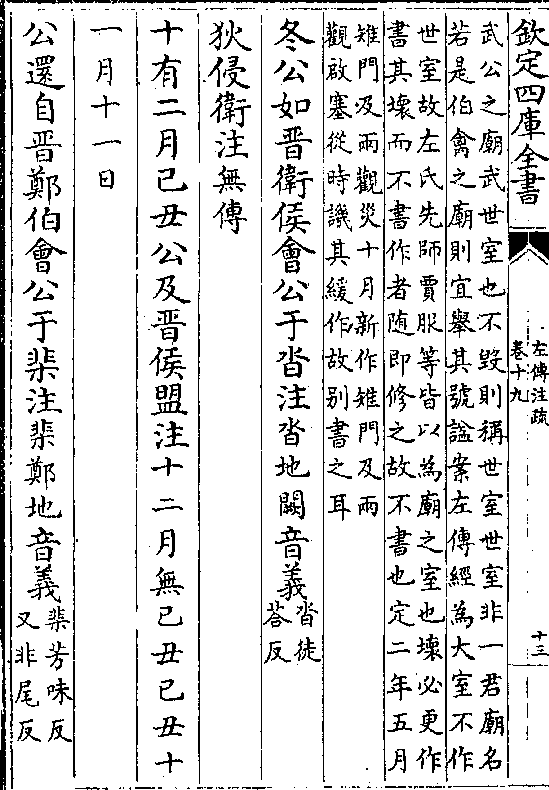 欽定四庫全書
左傳注疏
卷十九
十三
武公之廟武世室也不毀則稱世室世室非一君廟名
若是伯禽之廟則宜舉其號諡案左傳經為大室不作
世室故左氏先師賈服等皆以為廟之室也壞必更作
書其壞而不書作者随即修之故不書也定二年五月
雉門及兩觀災十月新作雉門及兩
觀啟塞從時譏其緩作故别書之耳
冬公如晋衛侯會公于沓注沓地闕音義沓徒
荅反
狄侵衛注無傳
十有二月己丑公及晋侯盟注十二月無己丑己丑十
一月十一日
公還自晋鄭伯會公于棐注棐鄭地音義棐芳味反
又非尾反